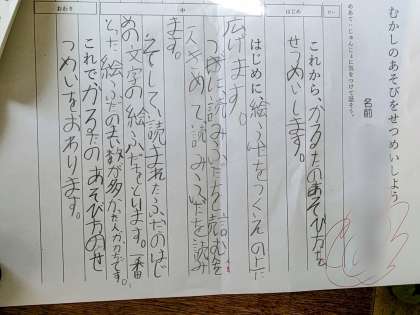 むかしのあそびをせつめいしよう
名前
めあて…じゅんじょに気をつけて話そう。
だい
はじめ
中
おわり
これから、かるたのあそび方を
せつめいします。
はじめに絵ふだをつくえの上に
広げます。
つぎに読みふだを読む
人をきめて読みふだを読み
ます。
そして、読まれたふだのはじ
めの文字の絵ふだをといます。一番
とった絵ふだの
数が多かった人がかちです。
これでかるたのあそび方のせ
つめいをおわります。